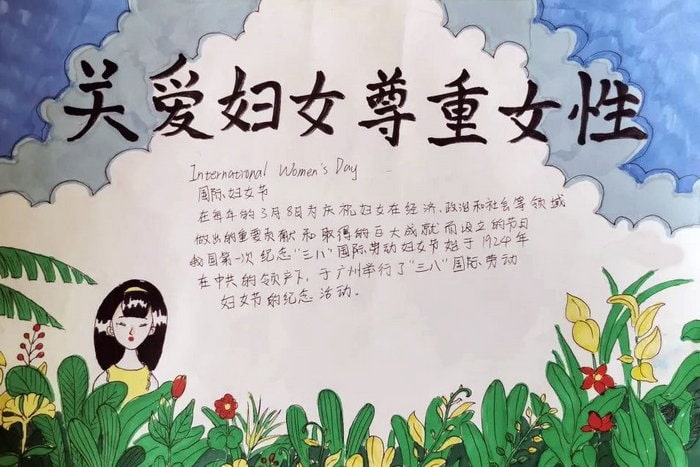 关爱妇女尊重女性
International Women's Day
国际妇女节
在每年的3月8日为庆祝妇女在经济、政治和社会等领域
做出的重要贡献和取得的巨大成就而设立的节日
我国第一次纪念"三八"国际劳动妇女节始于1924年
在中共的领产下,于广州举行了"三八"国际劳动
妇女节的纪念活动。